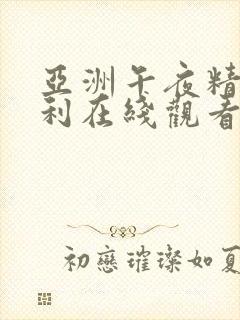 亞洲午夜精
利在綫觀看
初戀璀璨如夏